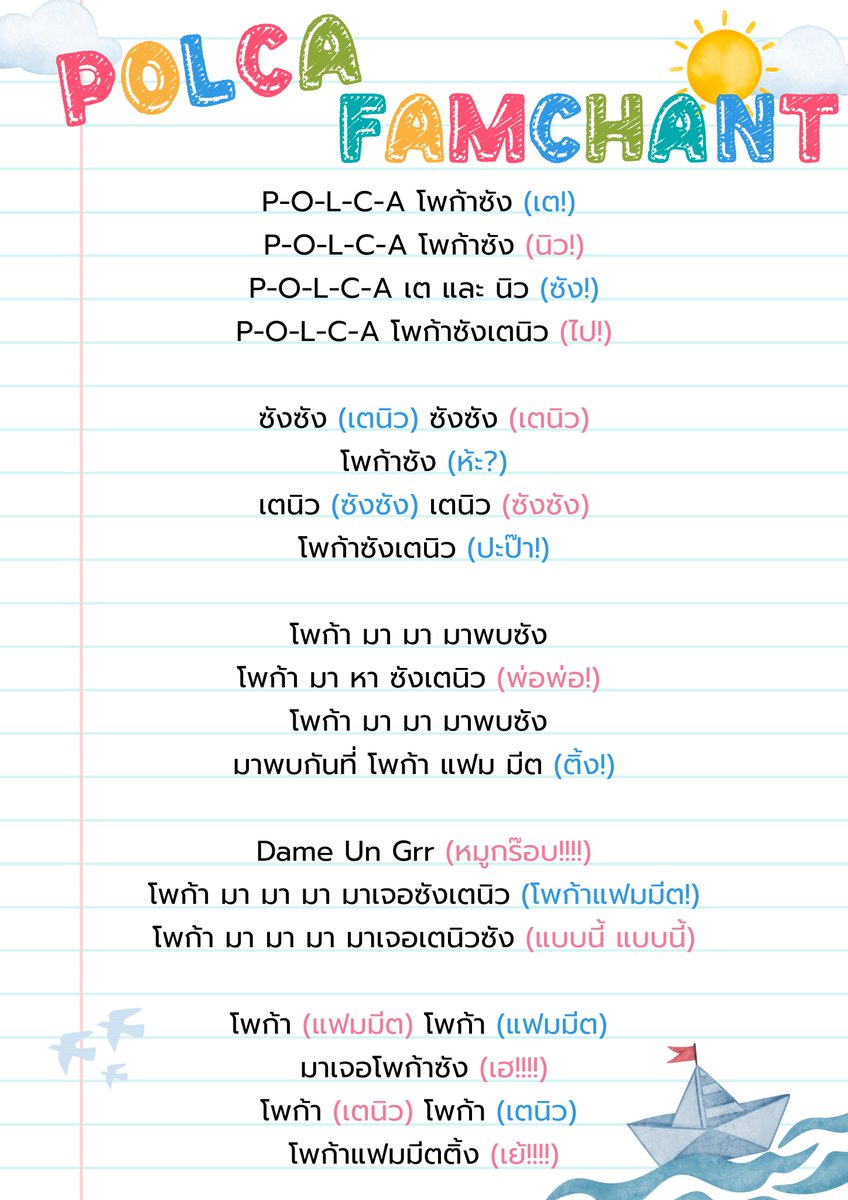 POLCA
FAMCHANT
P-O-L-C-A โพก้าซัง (เต!)
P-O-L-C-A โพก้าซัง (นิว!)
P-O-L-C-A เต และ นิว (ซัง!)
P-O-L-C-A โพก้าซังเตนิว (ไป!)
ซังซัง (เตนิว) ซังซัง (เตนิว)
โพก้าซัง (ห้ะ?)
เตนิว (ซังซัง) เตนิว (ซังซัง)
โพก้าซังเตนิว (ปะป๊า!)
โพก้า มา มา มาพบซัง
โพก้า มา หา ซังเตนิว (พ่อพ่อ!)
โพก้า มา มา มาพบซัง
มาพบกันที่ โพก้า แฟม มีต (ติ้ง!)
Dame Un Grr (หมูกร๊อบ!!!!)
โพก้า มา มา มา มาเจอซังเตนิว (โพก้าแฟมมีต!)
โพก้า มา มา มา มาเจอเตนิวซัง (แบบนี้ แบบนี้)
โพก้า (แฟมมีต) โพก้า (แฟมมีต)
มาเจอโพก้าซัง (เฮ!!!!)
โพก้า (เตนิว) โพก้า (เตนิว)
โพก้าแฟมมีตติ้ง (เย้!!!!)